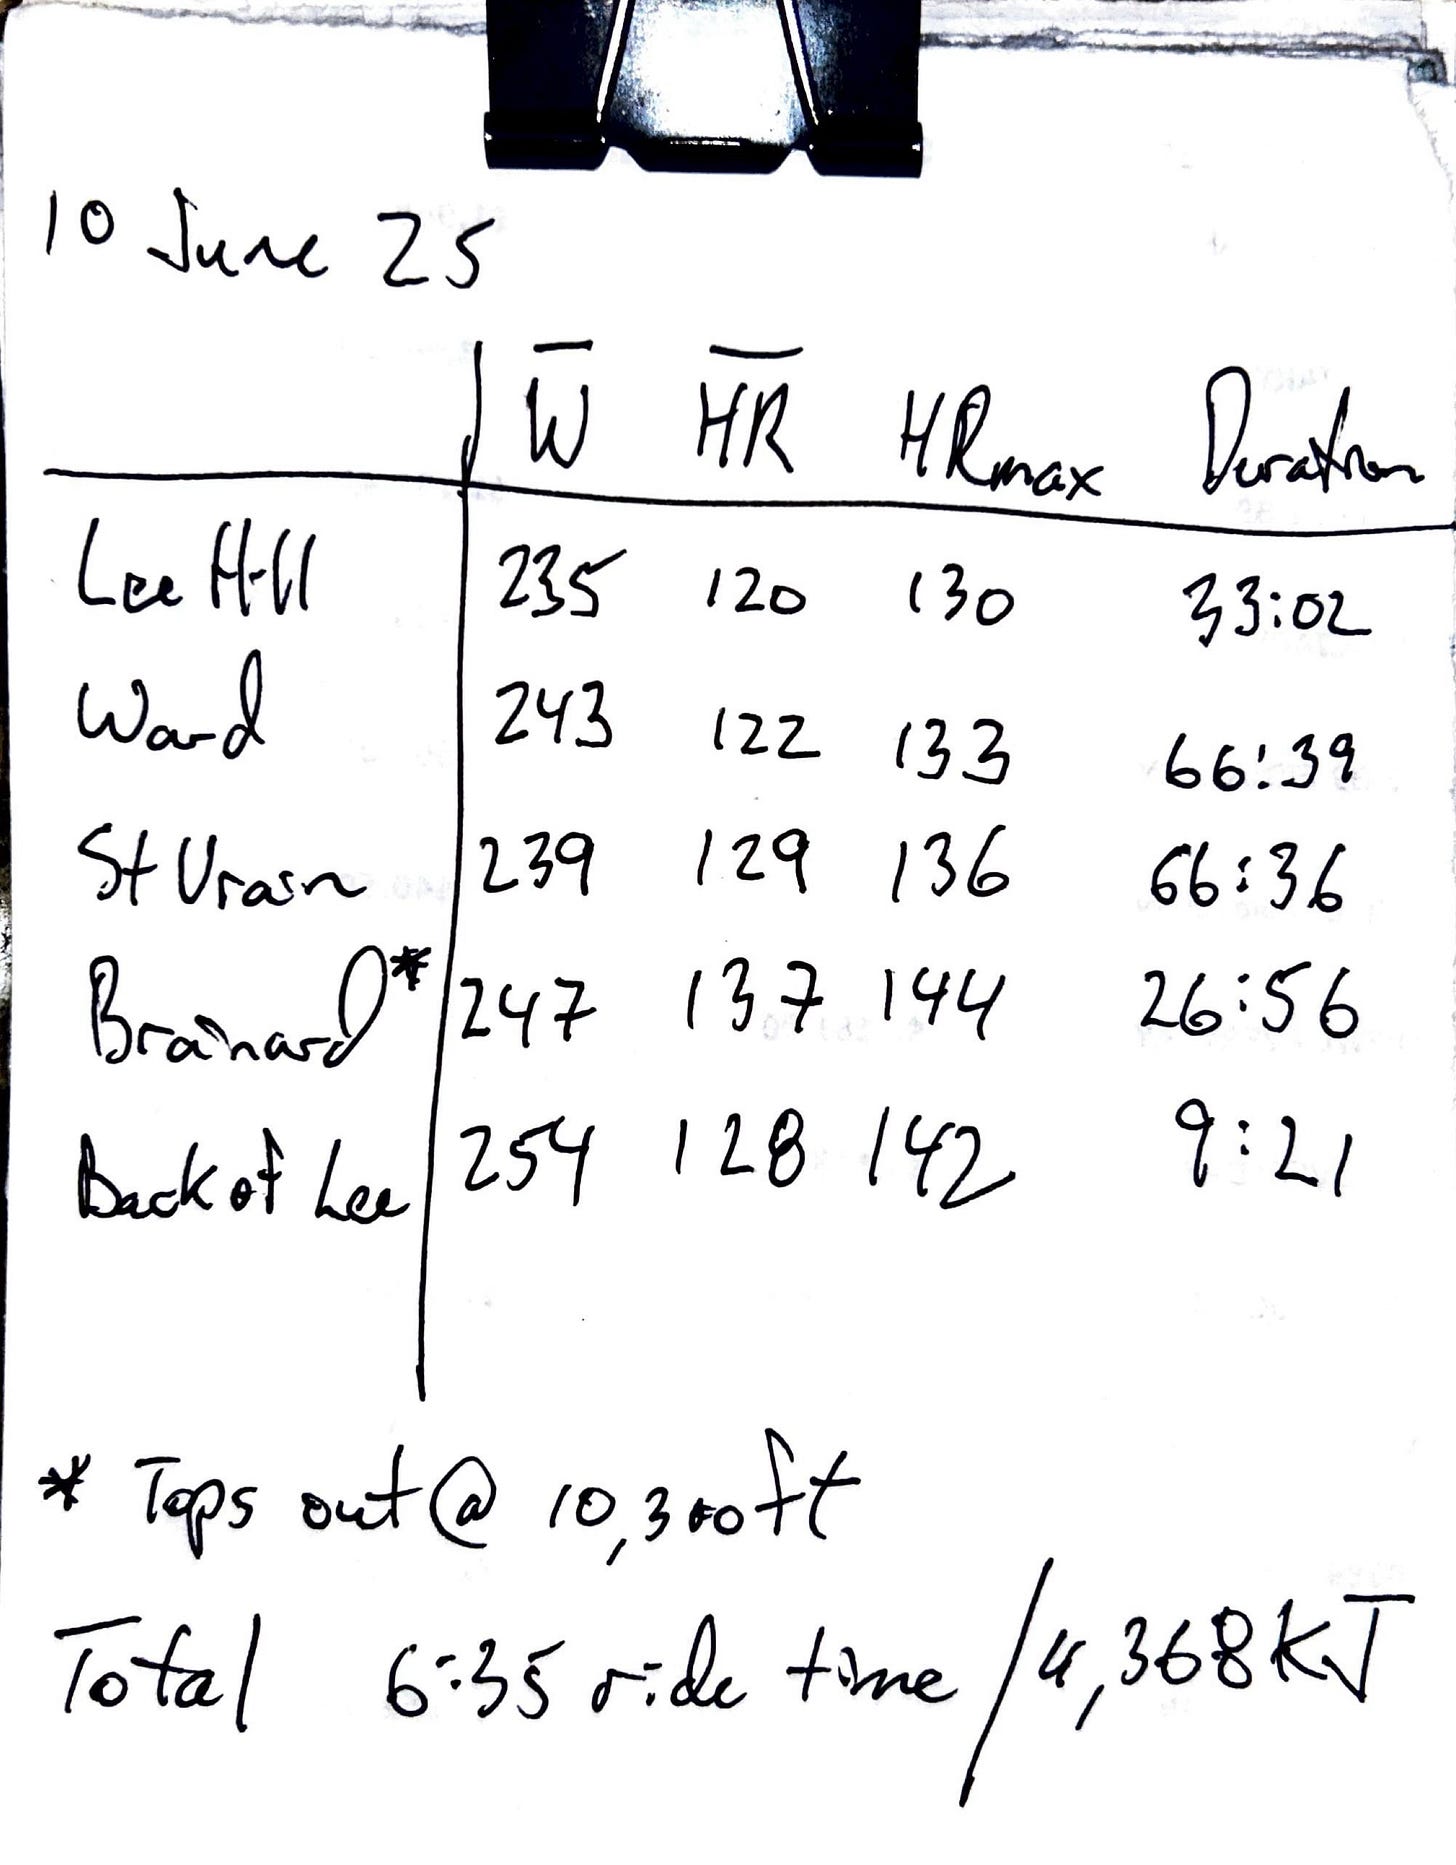 10 June 25
W̅ H̅R̅ HRmax Duration
Lee Hill 235 120 130 33:02
Ward 243 122 133 66:39
St Vrain 239 129 136 66:36
Brainard* 247 137 144 26:56
Back of Lee 254 128 142 9:21
* Tops out @ 10,300ft
Total 6:35 ride time / 4,368kJ